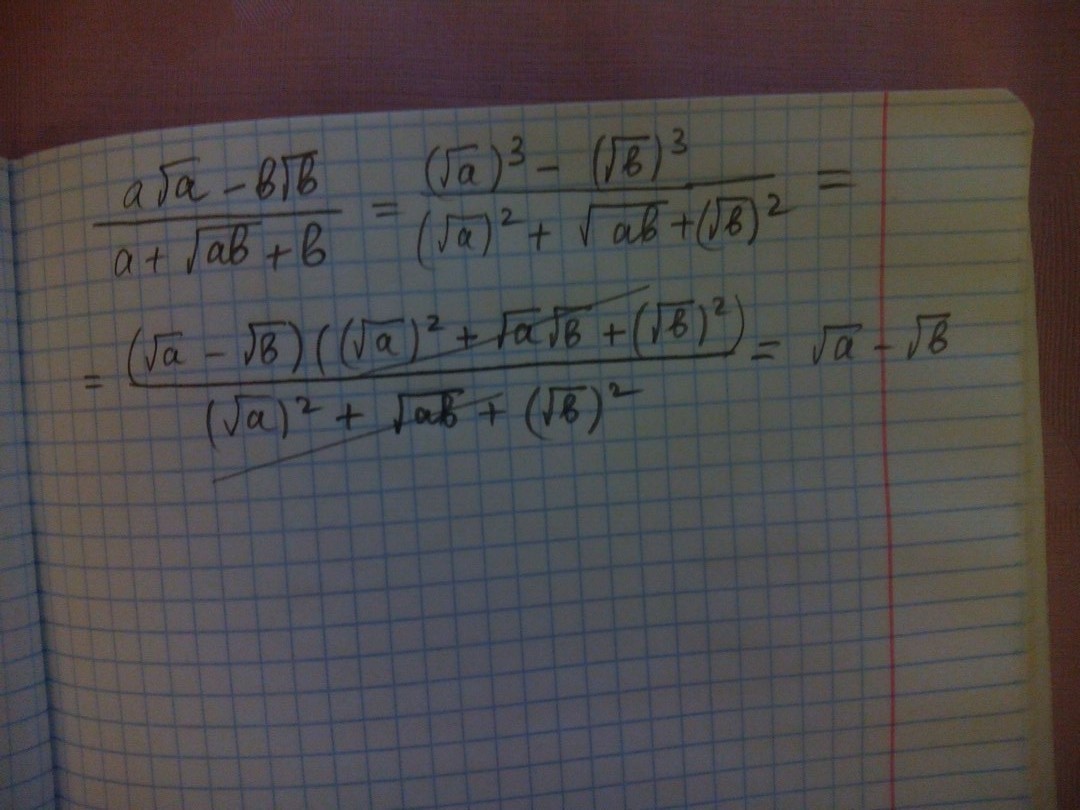 (a√a − b√b)/(a + √ab + b) = ((√a)³ − (√b)³)/((√a)² + √ab + (√b)²) =
= ((√a − √b)((√a)² + √a√b + (√b)²))/((√a)² + √ab + (√b)²) = √a − √b